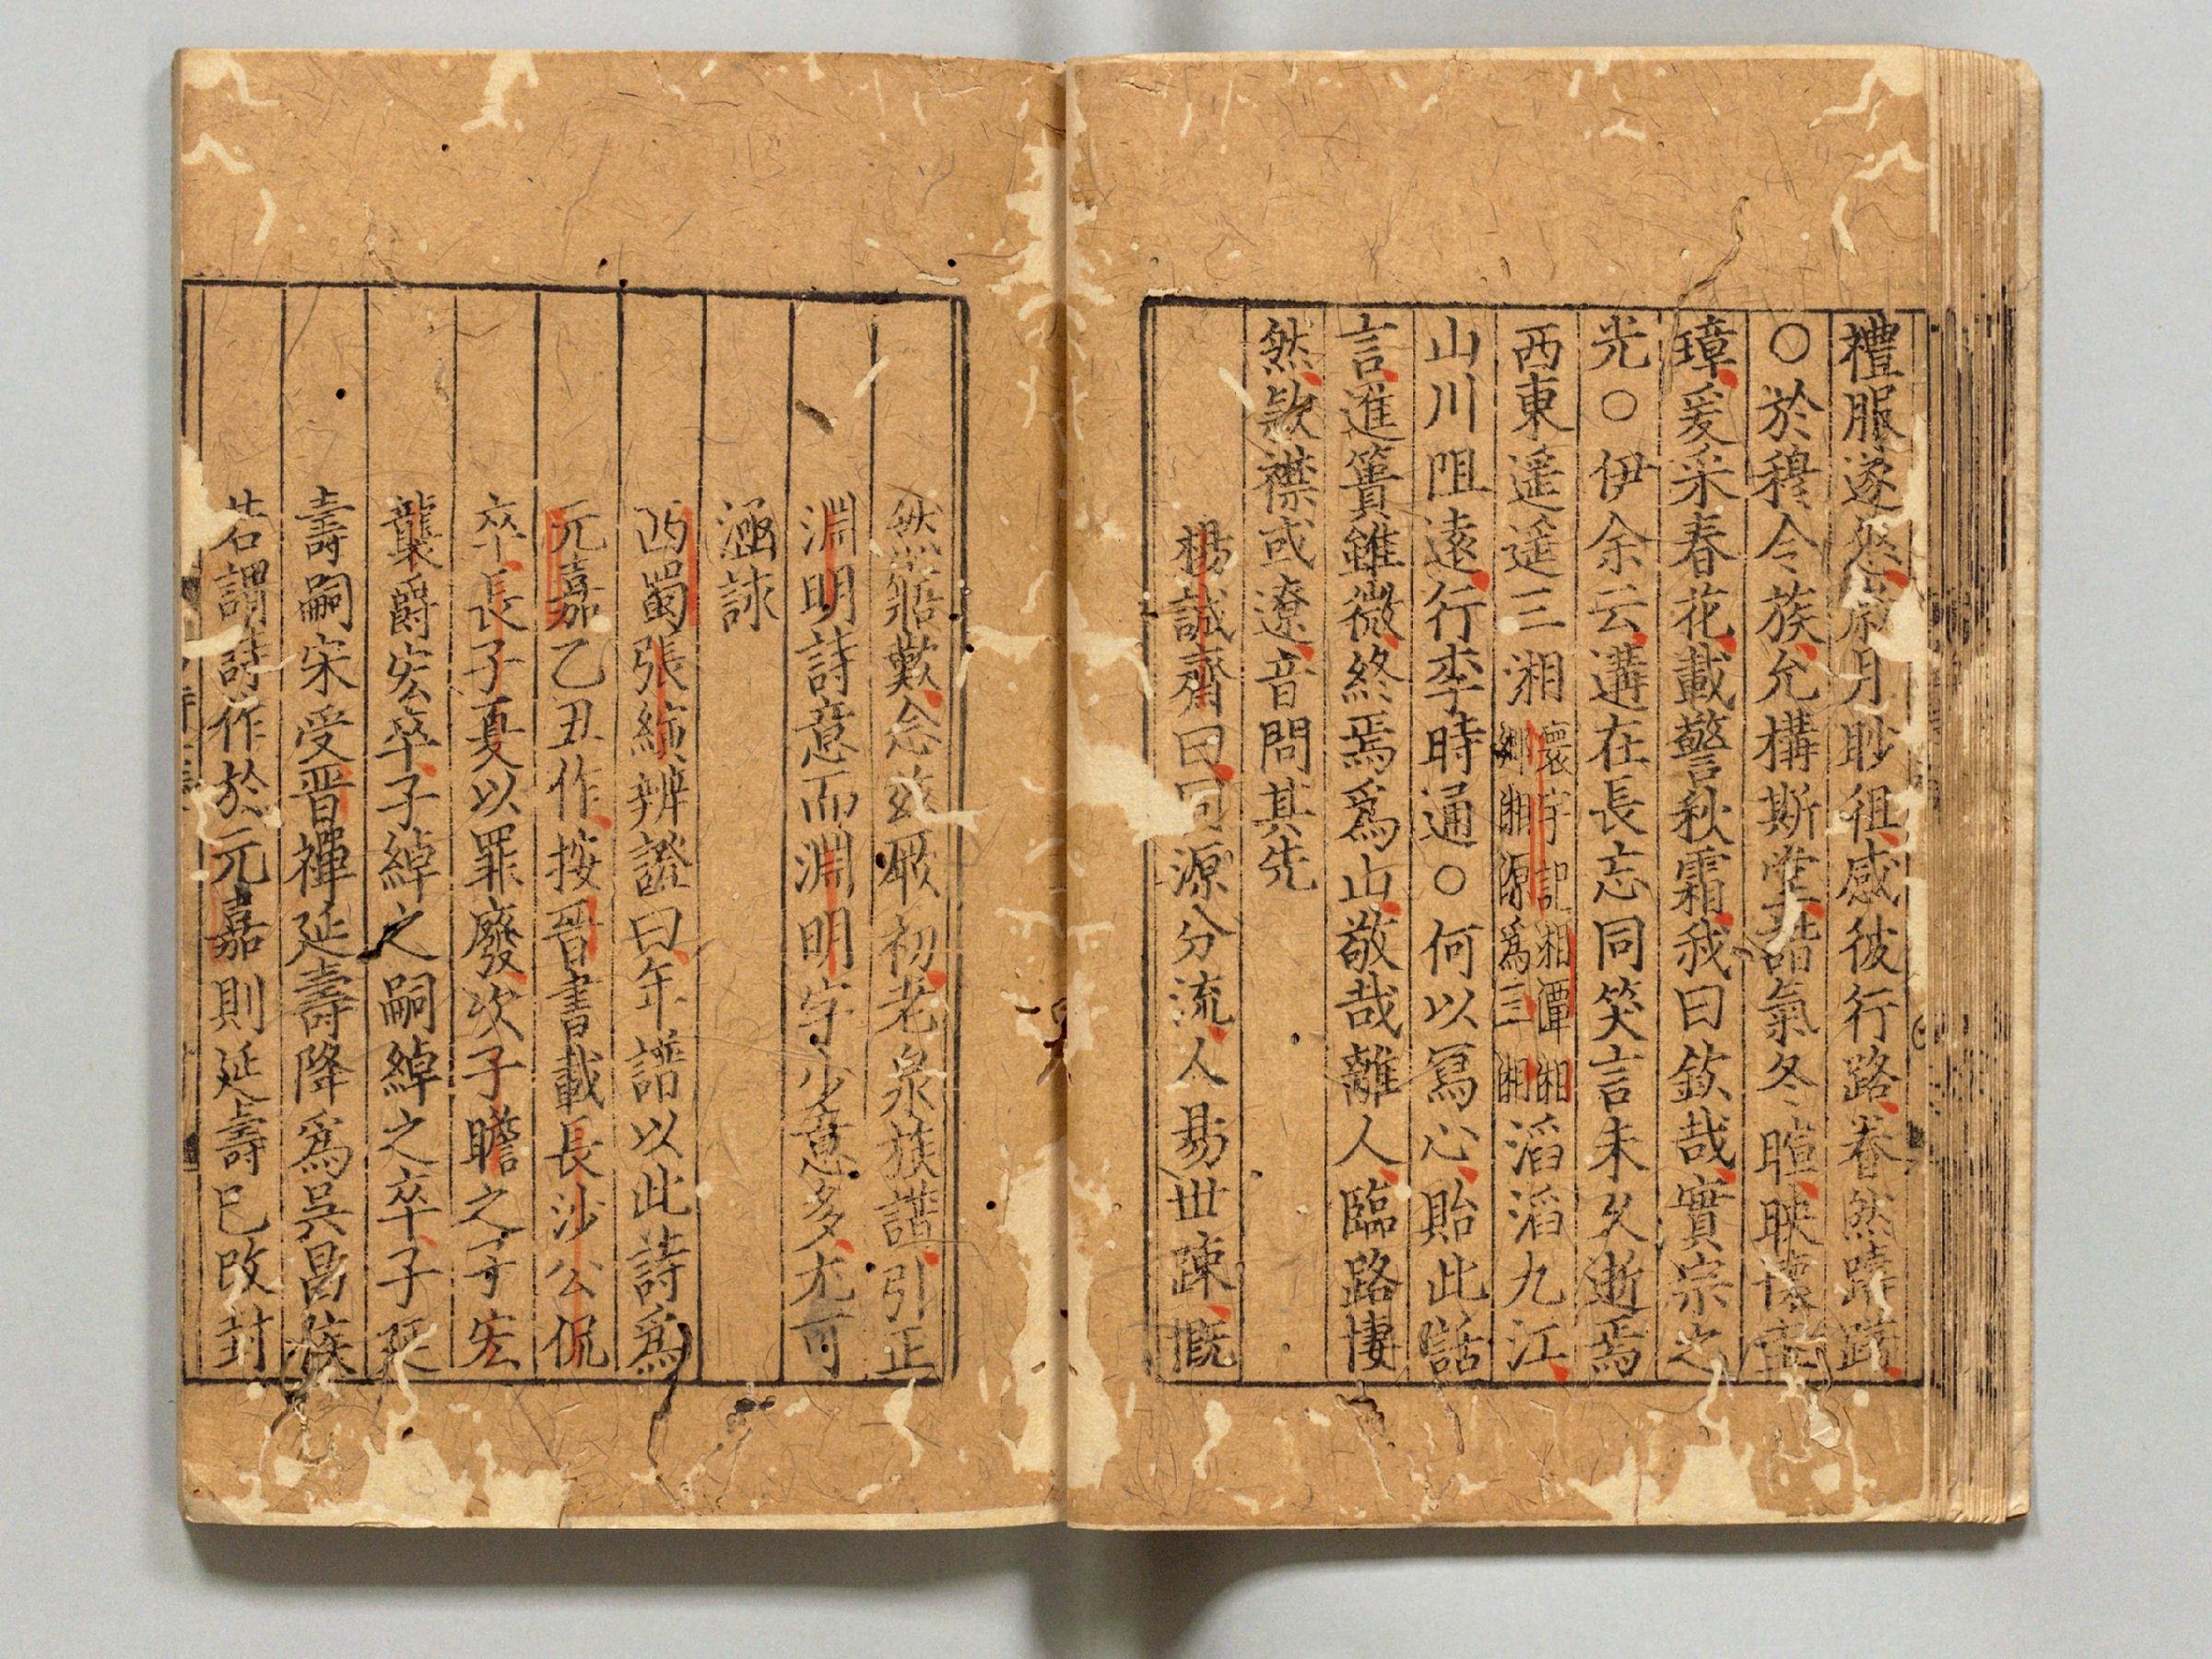 禮服遂悠歲月眇徂感彼行路眷然躊躇
○於穆令族允構斯堂諧氣冬暄映懷圭
璋爰采春花載警秋霜我曰欽哉實宗之
光○伊余云遘在長忘同笑言未久逝焉
西東遥遥三湘寰宇記湘潭湘鄉湘源爲三湘滔滔九江
山川阻遠行李時通○何以寫心貽此話
言進簣雖微終焉爲山敬哉離人臨路悽
然欵襟或遼音問其先
楊誠齋曰同源分流人易世踈慨
然寤歎念玆厥初老泉族譜引正
淵明詩意而淵明字少意多尤可
涵詠
西蜀張縯辨證曰年譜以此詩爲
元嘉乙丑作按晉書載長沙公侃
卒長子夏以罪廢次子瞻之子宏
襲爵宏卒子綽之嗣綽之卒子延
壽嗣宋受晉禪延壽降爲吳昌侯
若謂詩作於元嘉則延壽已改封